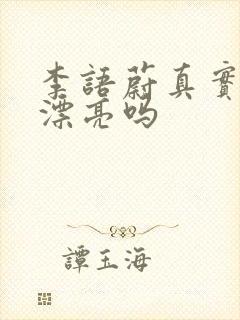 李語蔚真實
漂亮嗎
譚玉海